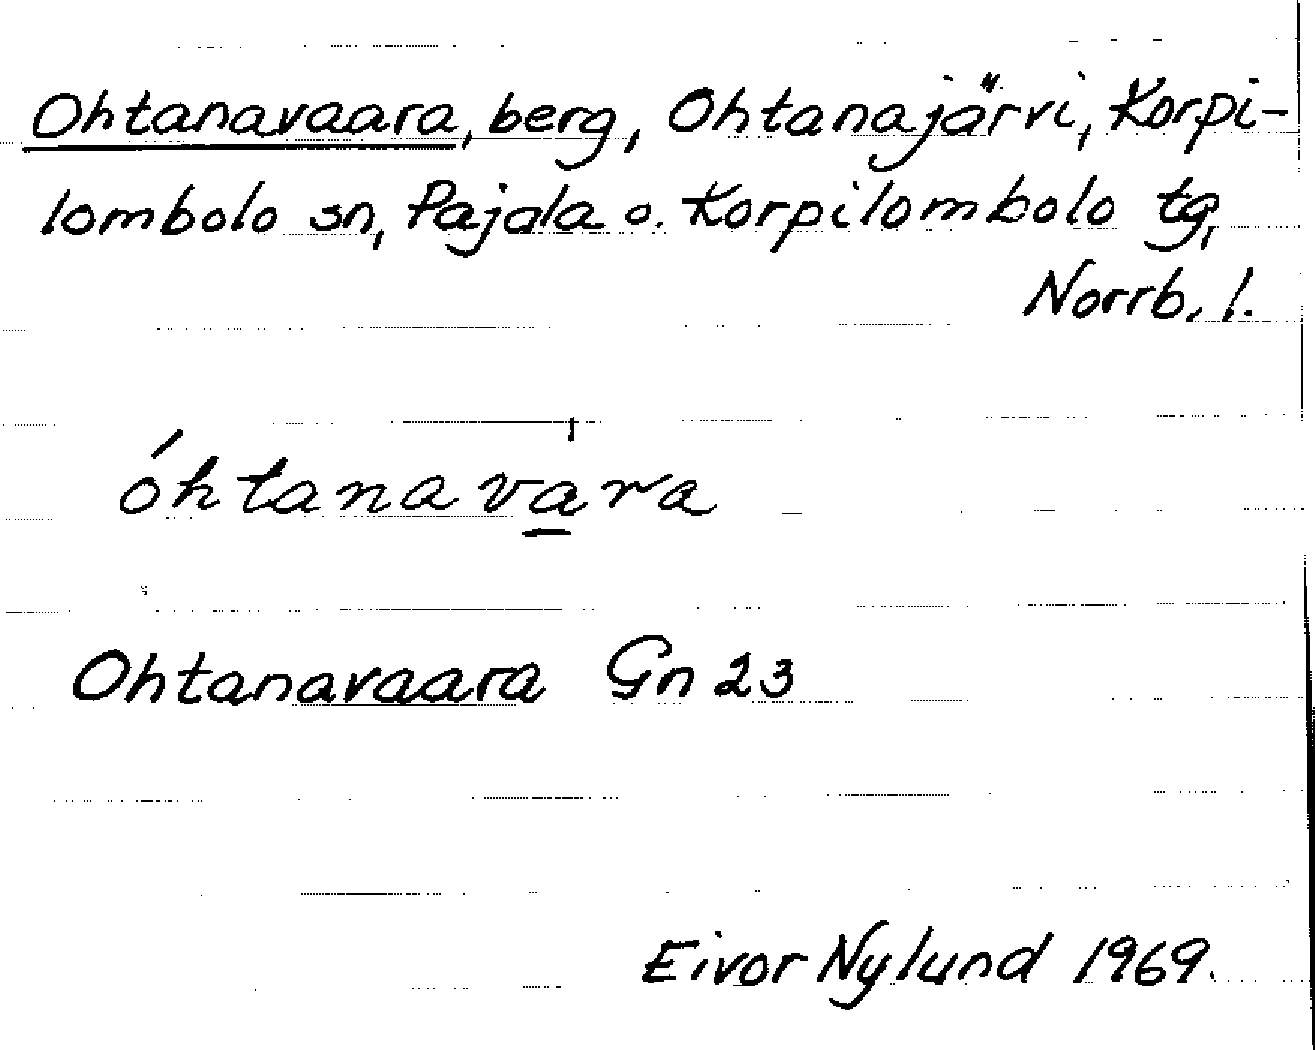 Ohtanavaara, berg, Ohtanajärvi, Korpi-
lombolo sn, Pajala o. Korpilombolo tg,
Norrb. l.
óhtanava̲̍ra
Ohtanavaara Gn 23
Eivor Nylund 1969.